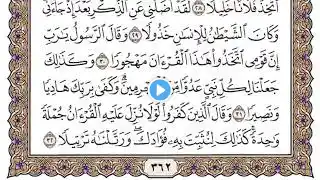 أَتَّخِذْ فُلَانًا خَلِيلًا ٢٨ لَّقَدْ أَضَلَّنِي عَنِ ٱلذِّكْرِ بَعْدَ إِذْ جَآءَنِي
وَكَانَ ٱلشَّيْطَٰنُ لِلْإِنسَٰنِ خَذُولًا ٢٩ وَقَالَ ٱلرَّسُولُ يَٰرَبِّ
إِنَّ قَوْمِي ٱتَّخَذُوا۟ هَٰذَا ٱلْقُرْءَانَ مَهْجُورًا ٣٠ وَكَذَٰلِكَ
جَعَلْنَا لِكُلِّ نَبِيٍّ عَدُوًّا مِّنَ ٱلْمُجْرِمِينَ وَكَفَىٰ بِرَبِّكَ هَادِيًا
وَنَصِيرًا ٣١ وَقَالَ ٱلَّذِينَ كَفَرُوا۟ لَوْلَا نُزِّلَ عَلَيْهِ ٱلْقُرْءَانُ جُمْلَةً
وَٰحِدَةً كَذَٰلِكَ لِنُثَبِّتَ بِهِۦ فُؤَادَكَ وَرَتَّلْنَٰهُ تَرْتِيلًا ٣٢
٣٦٢